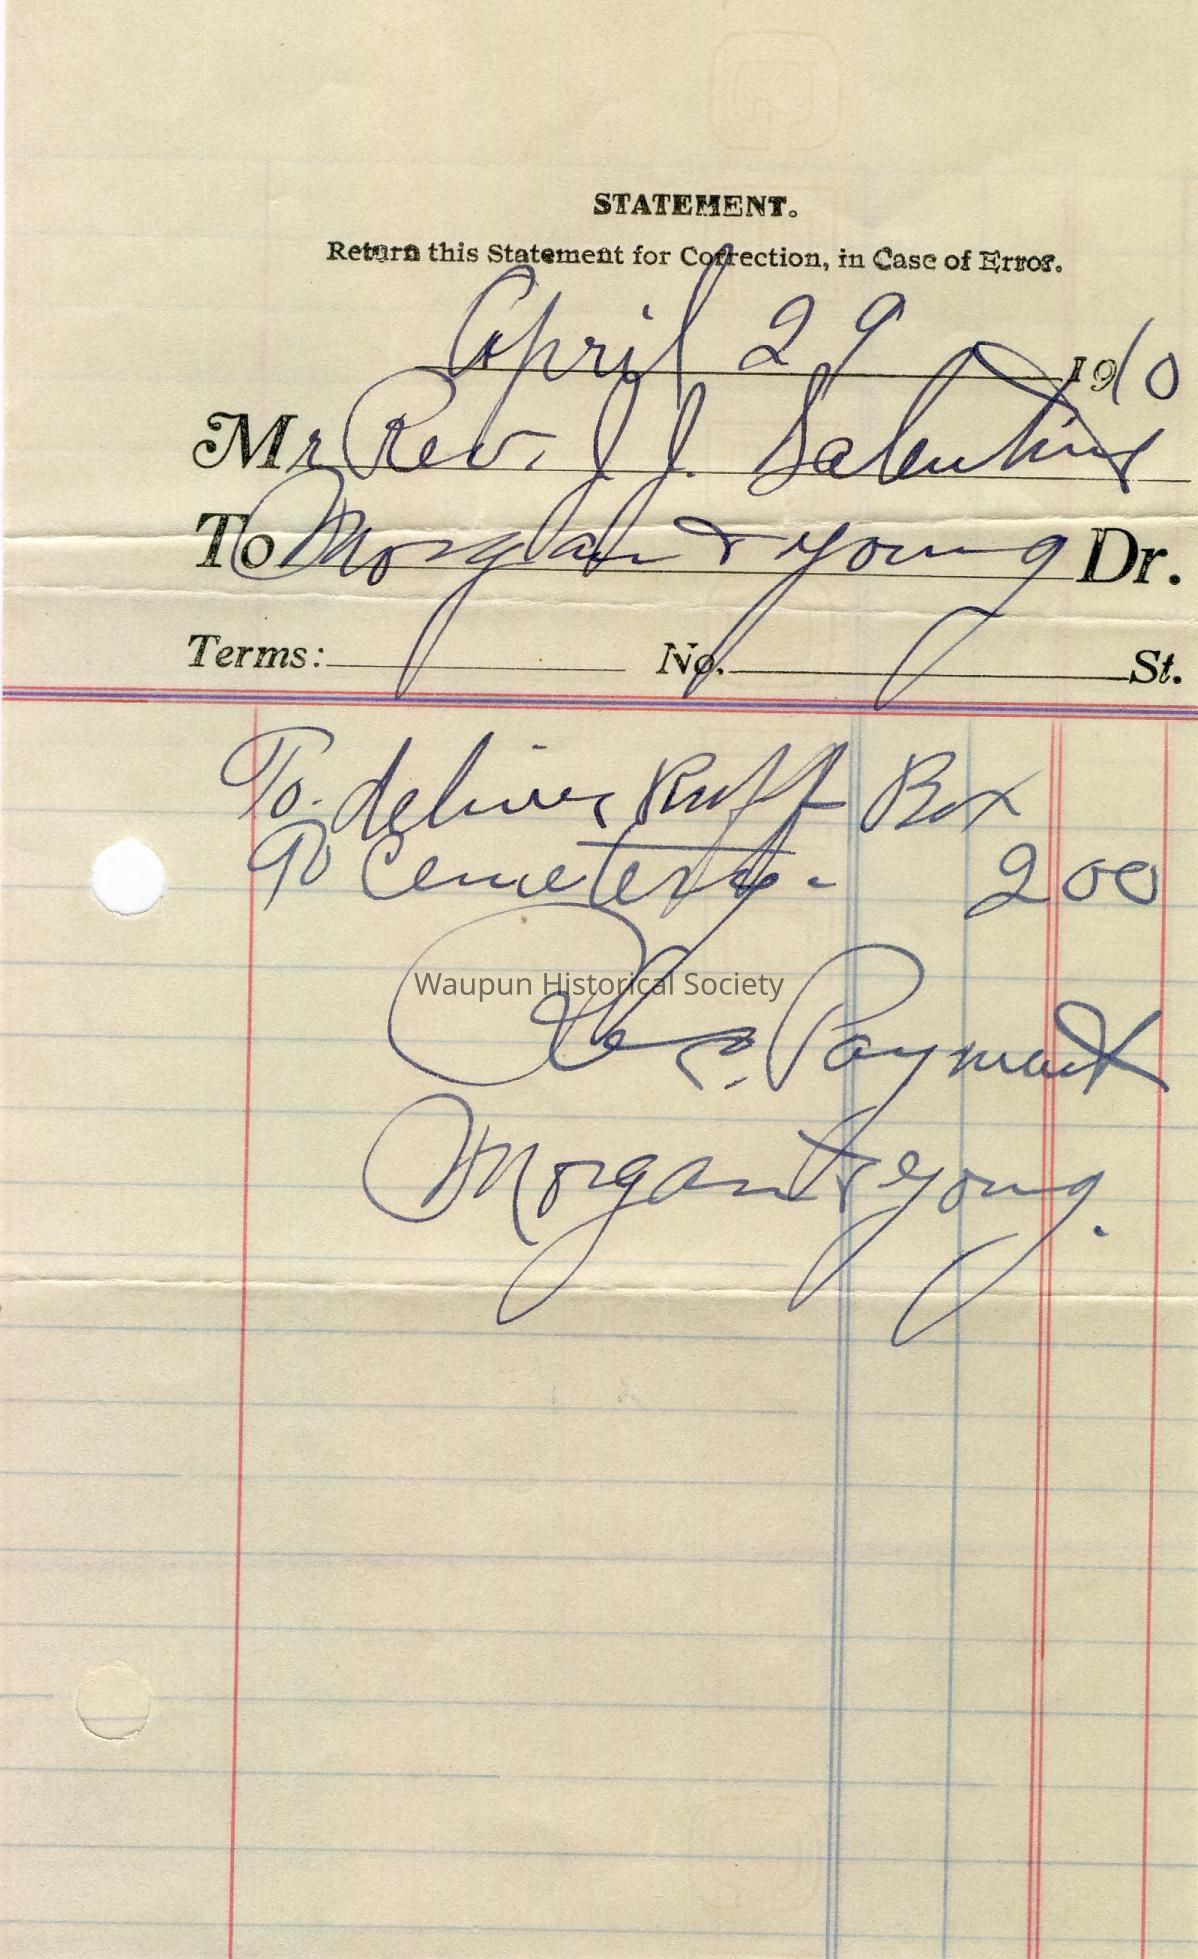 STATEMENT.
Return this Statement for Correction, in Case of Error.
April 29 1910
Mr Rev. J. J. Salentine
To Morgan & Young Dr.
Terms: No. St.
To deliver Ruff Box
To Cemetery - 2 00
Waupun Historical Society
Payment
Morgan & Young.